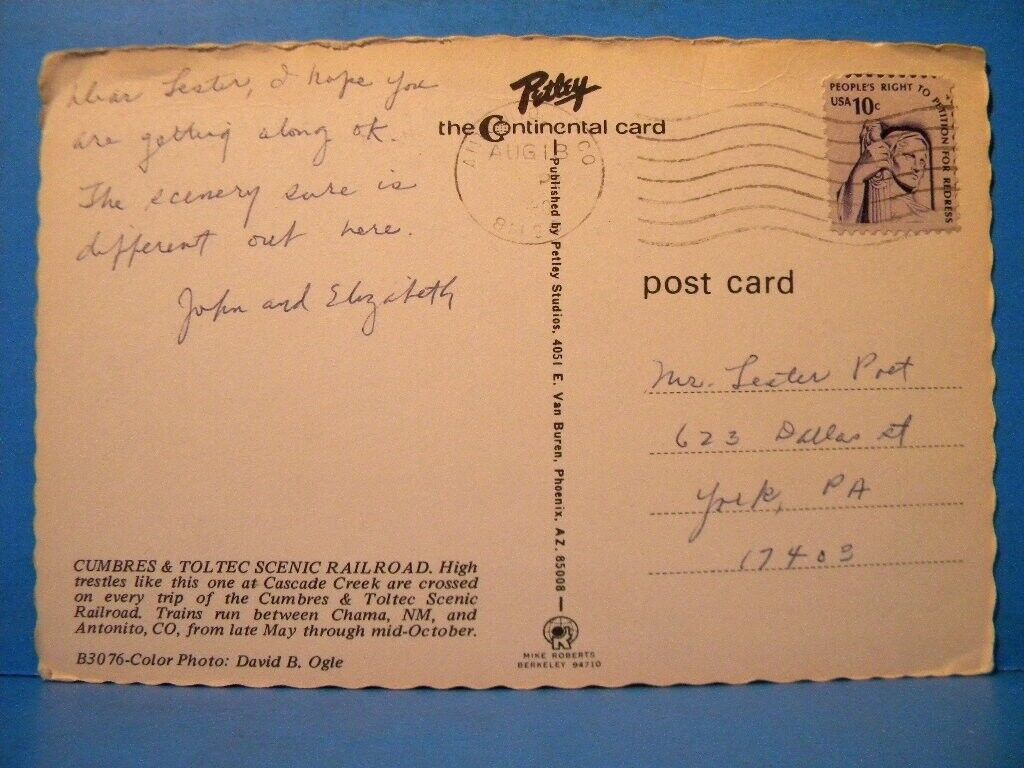 Dear Lester, I hope you
are getting along ok.
The scenery sure is
different out here.
John and Elizabeth
CUMBRES & TOLTEC SCENIC RAILROAD. High
trestles like this one at Cascade Creek are crossed
on every trip of the Cumbres & Toltec Scenic
Railroad. Trains run between Chama, NM, and
Antonito, CO, from late May through mid-October.
B3076-Color Photo: David B. Ogle
Petley
the Continental card
Published by Petley Studios, 4051 E. Van Buren, Phoenix, AZ. 85008
MIKE ROBERTS
BERKELEY 94710
CO
AUG 18
PEOPLE'S RIGHT TO PETITION FOR REDRESS
USA 10c
post card
Mr. Lester Poet
623 Dallas St
York, PA
17403